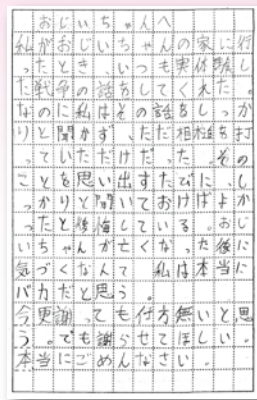 おじいちゃんへ
私がおじいちゃんの家に行
ったとき、いつも実体験し
た戦争の話をしてくれた。
なのに私はその話をしっか
りと聞かず、ただ相槌を打
っていただけだった。その
ことを思い出すたびに、し
っかりと聞いておけばよか
ったと後悔している。おじ
いちゃんが亡くなった後に
気づくなんて 私は本当に
バカだと思う。
今更謝っても仕方無いと思
う。でも謝らせてほしい。
本当にごめんなさい。